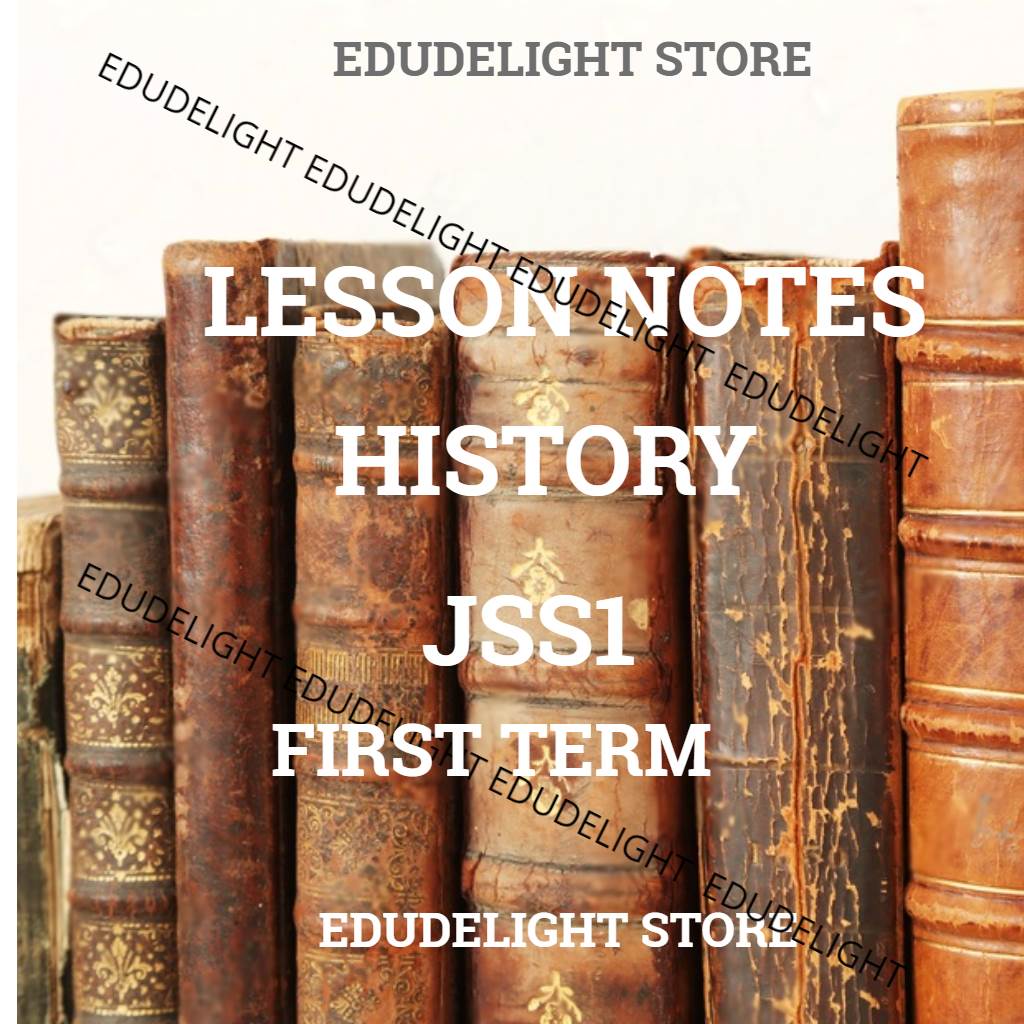 EDUDELIGHT STORE
EDUDELIGHT EDUDELIGHT EDUDELIGHT EDUDELIGHT
LESSON NOTES
HISTORY
JSS1
EDUDELIGHT EDUDELIGHT EDUDELIGHT EDUDELIGHT
FIRST TERM
EDUDELIGHT STORE